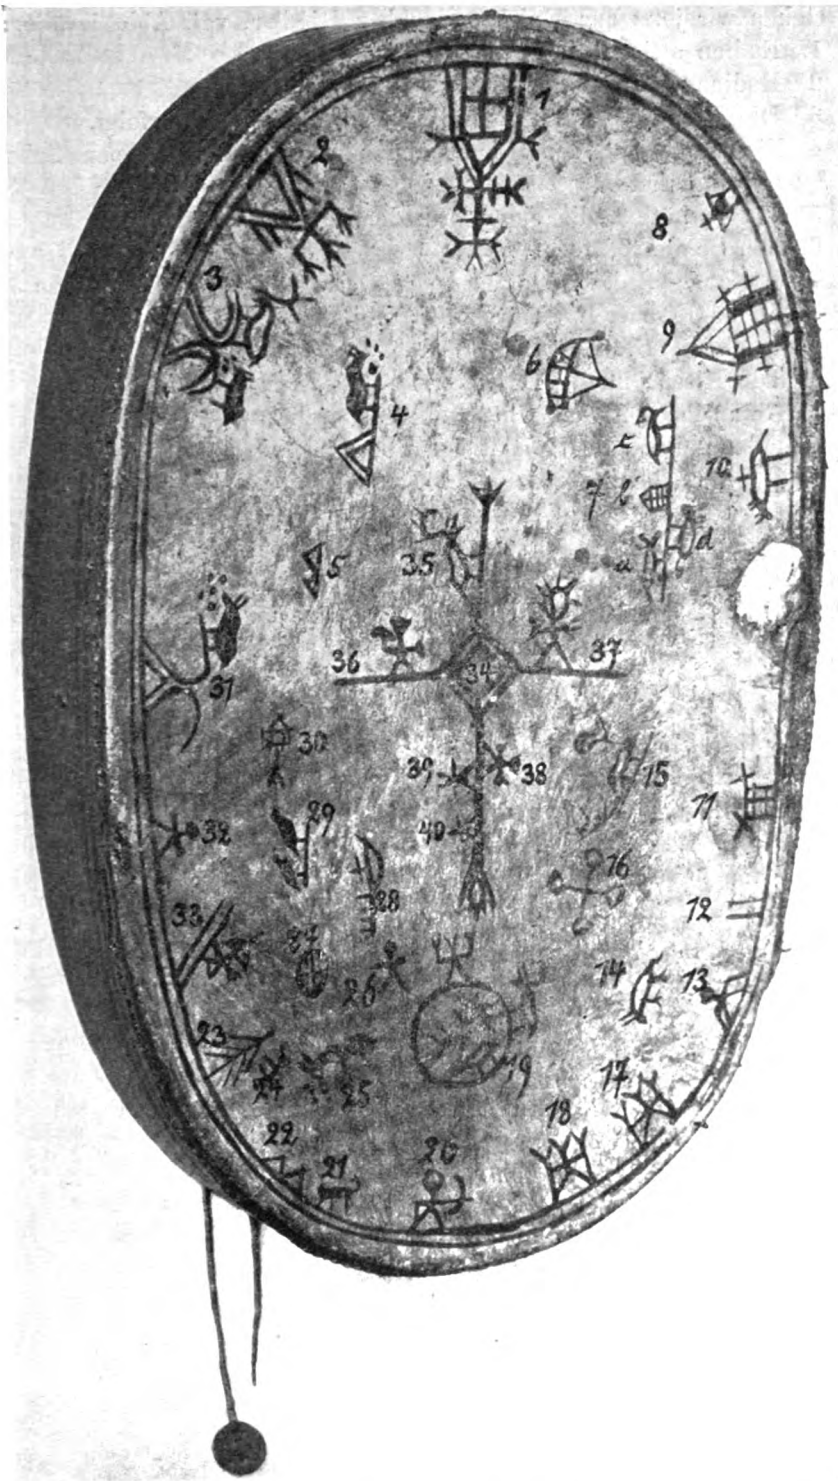 1
2
8
3
9
6
4
c
10
7 b
d
5
35
a
36
34
37
31
30
39
38
15
11
29
32
40
16
28
12
33
27
26
14
13
23
24
25
19
17
18
22
21
20